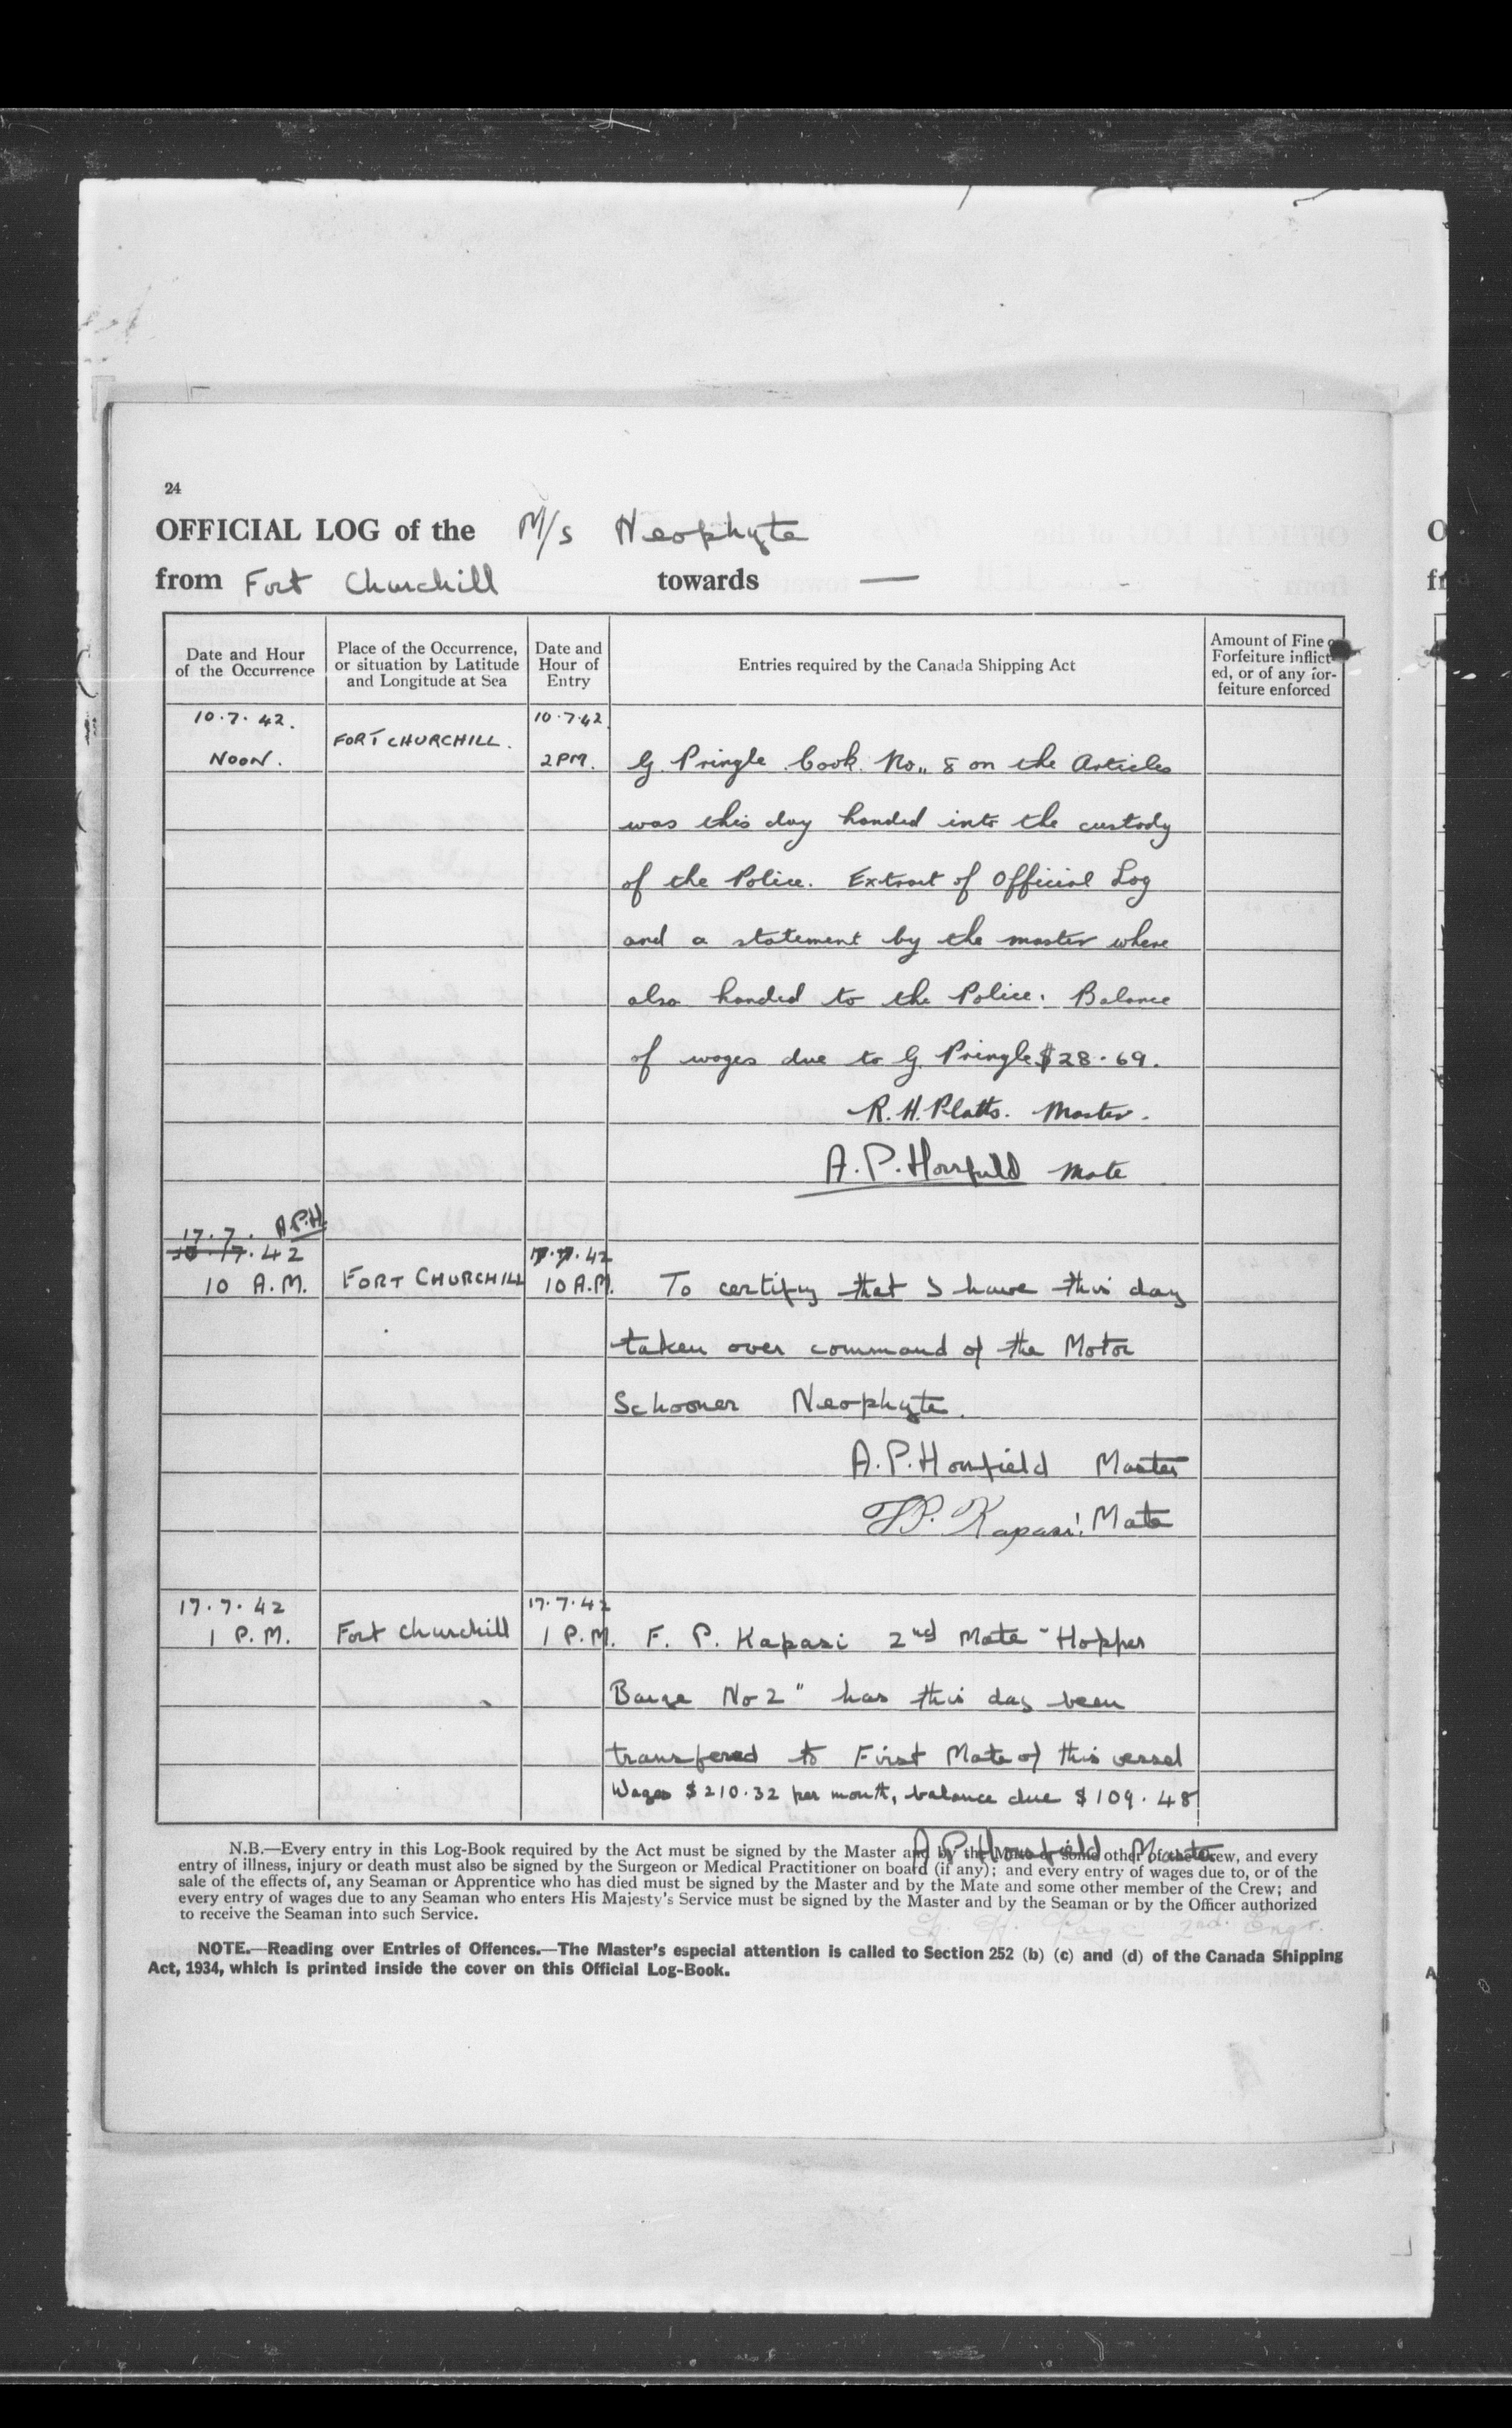 24
OFFICIAL LOG of the M/s Neophyte
from Fort Churchill towards —
Date and Hour
of the Occurrence
Place of the Occurrence,
or situation by Latitude
and Longitude at Sea
Date and
Hour of
Entry
Entries required by the Canada Shipping Act
Amount of Fine
Forfeiture inflict-
ed, or of any for-
feiture enforced
10.7.42. 10.7.42
NOON. FORT CHURCHILL. 2PM. G. Pringle Cook. No,, 8 on the Articles
was this day handed into the custody
of the Police. Extract of Official Log
and a statement by the master where
also handed to the Police. Balance
of wages due to G. Pringle $28.69.
R.H. Platts. Master.
A.P. Hornfield Mate
17.7. A.P.H.
17.42 17.7.42
10 A.M. FORT CHURCHILL 10 A.M. To certify that I have this day
taken over command of the Motor
Schooner Neophyte.
A.P. Hornfield Master
F.P. Kapasi. Mate
17.7.42 17.7.42
1 P.M. Fort Churchill 1 P.M. F. P. Kapasi 2nd Mate "Hopper
Barge No 2" has this day been
transfered to First Mate of this vessel
Wages $210.32 per month, balance due $109.48
A.P. Hornfield Master
N.B.—Every entry in this Log-Book required by the Act must be signed by the Master and by the Mate or some other of the Crew, and every
entry of illness, injury or death must also be signed by the Surgeon or Medical Practitioner on board (if any); and every entry of wages due to, or of the
sale of the effects of, any Seaman or Apprentice who has died must be signed by the Master and by the Mate and some other member of the Crew; and
every entry of wages due to any Seaman who enters His Majesty's Service must be signed by the Master and by the Seaman or by the Officer authorized
to receive the Seaman into such Service.
H. Page 2nd. Engr.
NOTE.—Reading over Entries of Offences.—The Master's especial attention is called to Section 252 (b) (c) and (d) of the Canada Shipping
Act, 1934, which is printed inside the cover on this Official Log-Book.